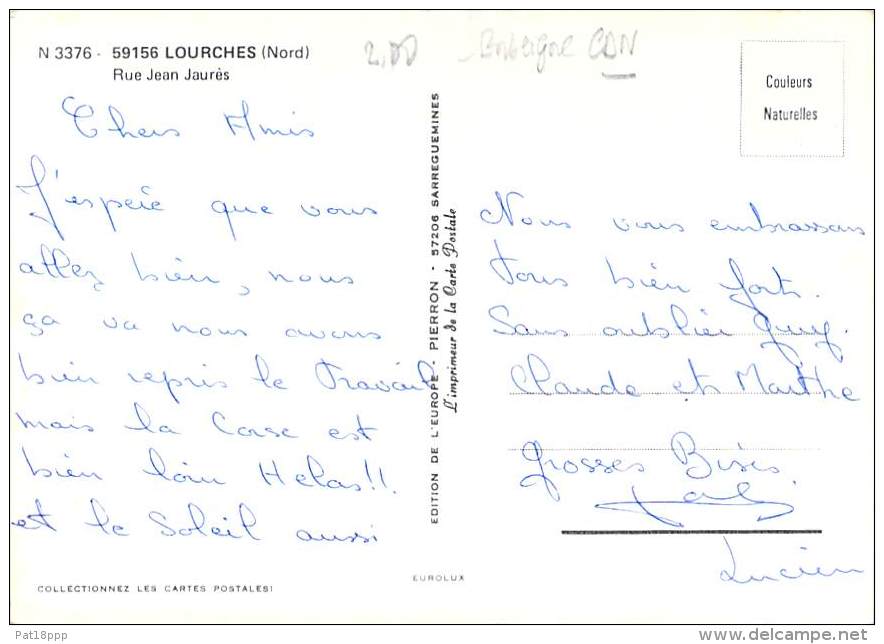 N 3376 - 59156 LOURCHES (Nord)
Rue Jean Jaurès
2,00
CDN
Couleurs
Naturelles
Chers Amis
J'espère que vous
allez bien, nous
ça va nous avons
bien repris le Travail
mais la Corse est
bien loin Helas!!
et le Soleil aussi
EDITION DE L'EUROPE - PIERRON - 57206 SARREGUEMINES
L'imprimeur de la Carte Postale
Nous vous embrassons
Tous bien forts.
Sans oublier Guy.
Claude et Marthe
Grosses Bises
Lucien
COLLECTIONNEZ LES CARTES POSTALES!
EUROLUX
Pat18ppp
www.delcampe.net